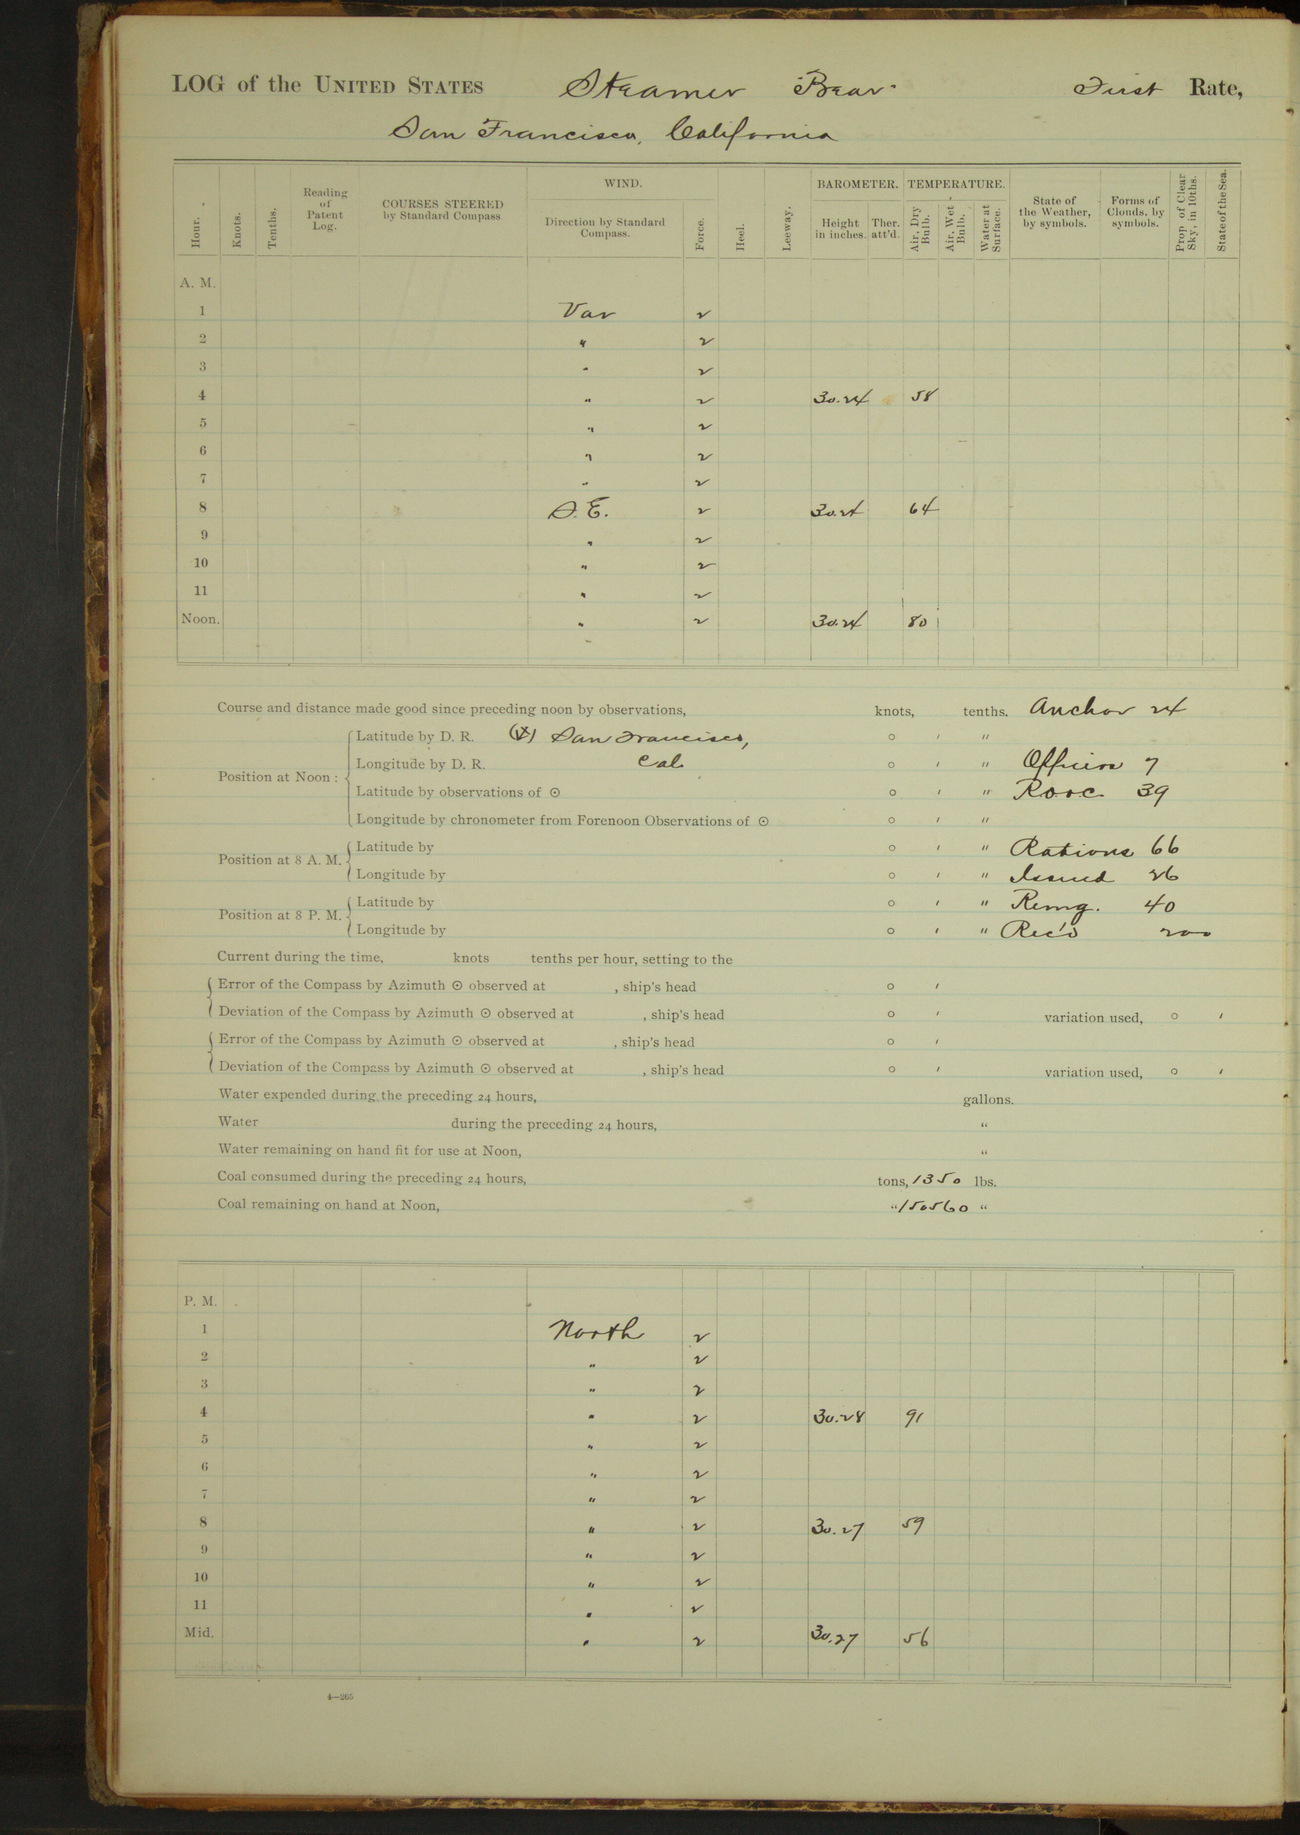 LOG of the UNITED STATES Steamer "Bear" First Rate,
San Francisco, California
Hour. Knots. Tenths. Reading of Patent Log. COURSES STEERED by Standard Compass WIND. Direction by Standard Compass. Force. Heel. Leeway. BAROMETER. Height in inches. Ther. att'd. TEMPERATURE. Air, Dry Bulb. Air, Wet Bulb. Water at Surface. State of the Weather, by symbols. Forms of Clouds, by symbols. Prop. of Clear Sky, in 10ths. State of the Sea.
A. M.
1 Var 2
2 " 2
3 " 2
4 " 2 30.24 58
5 " 2
6 " 2
7 " 2
8 S.E. 2 30.24 64
9 " 2
10 " 2
11 " 2
Noon. " 2 30.24 80
Course and distance made good since preceding noon by observations, knots, tenths. Anchor 24
Position at Noon: Latitude by D. R. San Francisco, ° ′ ″
Longitude by D. R. Cal. ° ′ ″ Officers 7
Latitude by observations of ⊙ ° ′ ″ 39
Longitude by chronometer from Forenoon Observations of ⊙ ° ′ ″
Position at 8 A. M. Latitude by ° ′ ″ Rations 66
Longitude by ° ′ ″ Issued 26
Position at 8 P. M. Latitude by ° ′ ″ Remg. 40
Longitude by ° ′ ″ Rec'd 200
Current during the time, knots tenths per hour, setting to the
Error of the Compass by Azimuth ⊙ observed at , ship's head ° ′
Deviation of the Compass by Azimuth ⊙ observed at , ship's head ° ′ variation used, ° ′
Error of the Compass by Azimuth ⊙ observed at , ship's head ° ′
Deviation of the Compass by Azimuth ⊙ observed at , ship's head ° ′ variation used, ° ′
Water expended during the preceding 24 hours, gallons.
Water during the preceding 24 hours, "
Water remaining on hand fit for use at Noon, "
Coal consumed during the preceding 24 hours, tons, 1350 lbs.
Coal remaining on hand at Noon, " 150560 "
P. M.
1 North 2
2 " 2
3 " 2
4 " 2 30.28 91
5 " 2
6 " 2
7 " 2
8 " 2 30.27 59
9 " 2
10 " 2
11 " 2
Mid. " 2 30.27 56
4—265